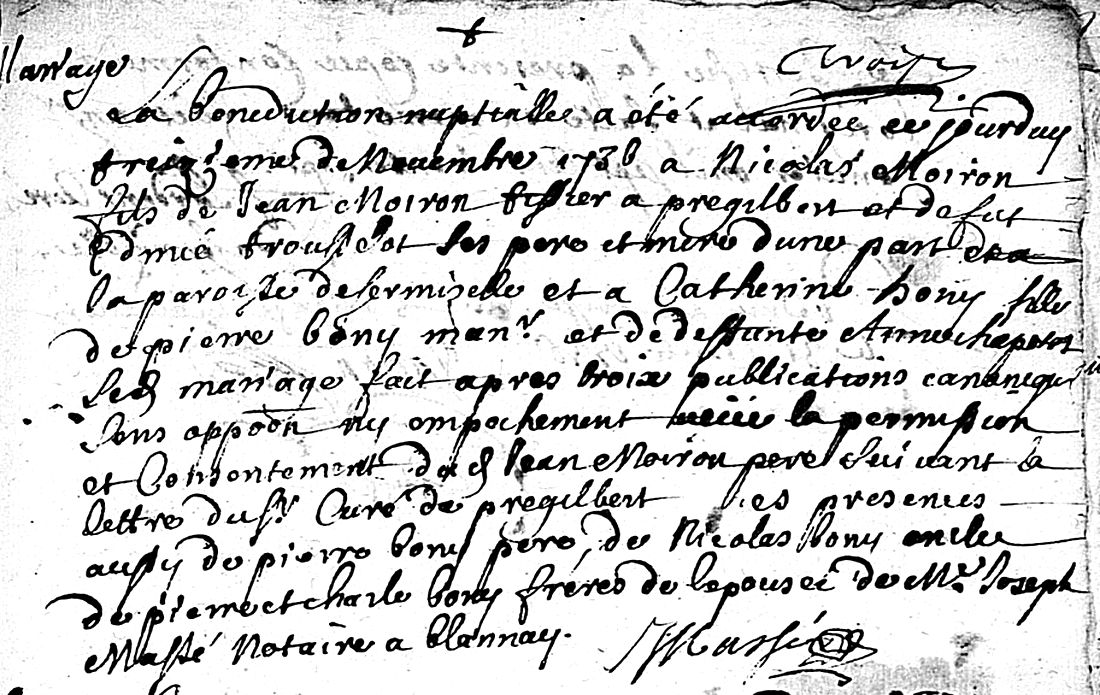 Mariage
La benediction nuptialle a été accordée ce jourduy
treizieme de Novembre 1736 a Nicolas Moiron
fils de Jean Moiron tissier a pregilbert et defut
Edmée trousselot ses pere et mere dune part de
la paroisse desermizelle et a Catherine bony fille
de pierre bony man.r et de deffunte Anne chapotot
led mariage fait apres troix publications canoniques
sans oppoõn ny empechement la permission
et Consentement dud Jean Moiron pere suivant la
lettre du s.r Curé de pregilbert es presences
aussy de pierre bony pere, de Nicolas bony oncle
de pierre et charle bony fréres de lepousée de M.e Joseph
Massé Notaire a blannay.
JMassé